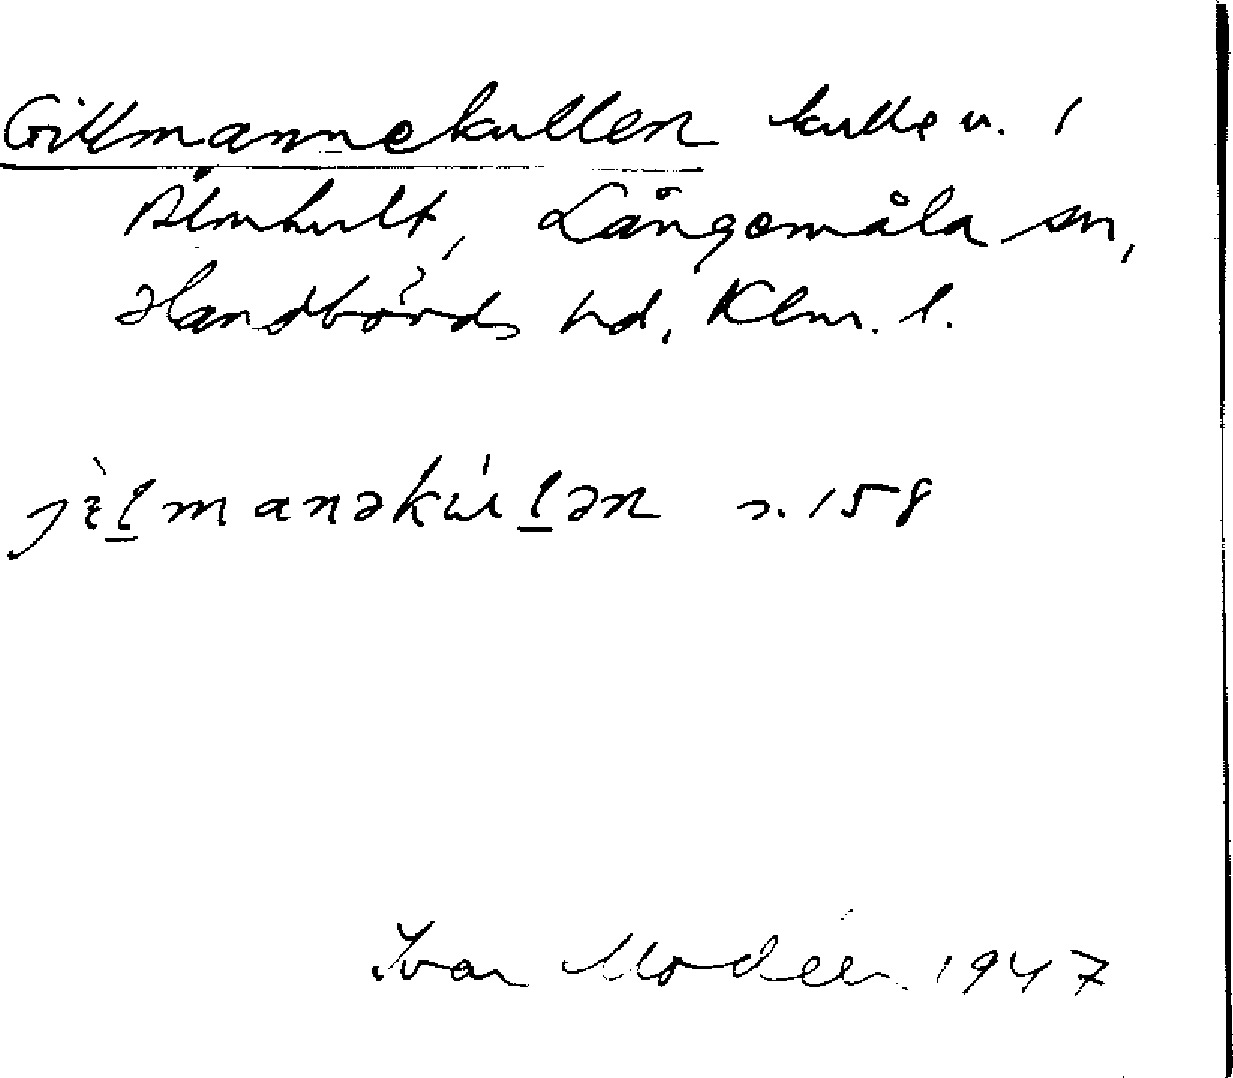 Gillmannekullen kulle v. i
Älmhult, Långemåla sn,
Handbörds hd, Klm. l.
jìlmanəkúlən s. 158
Ivar Modéer 1947